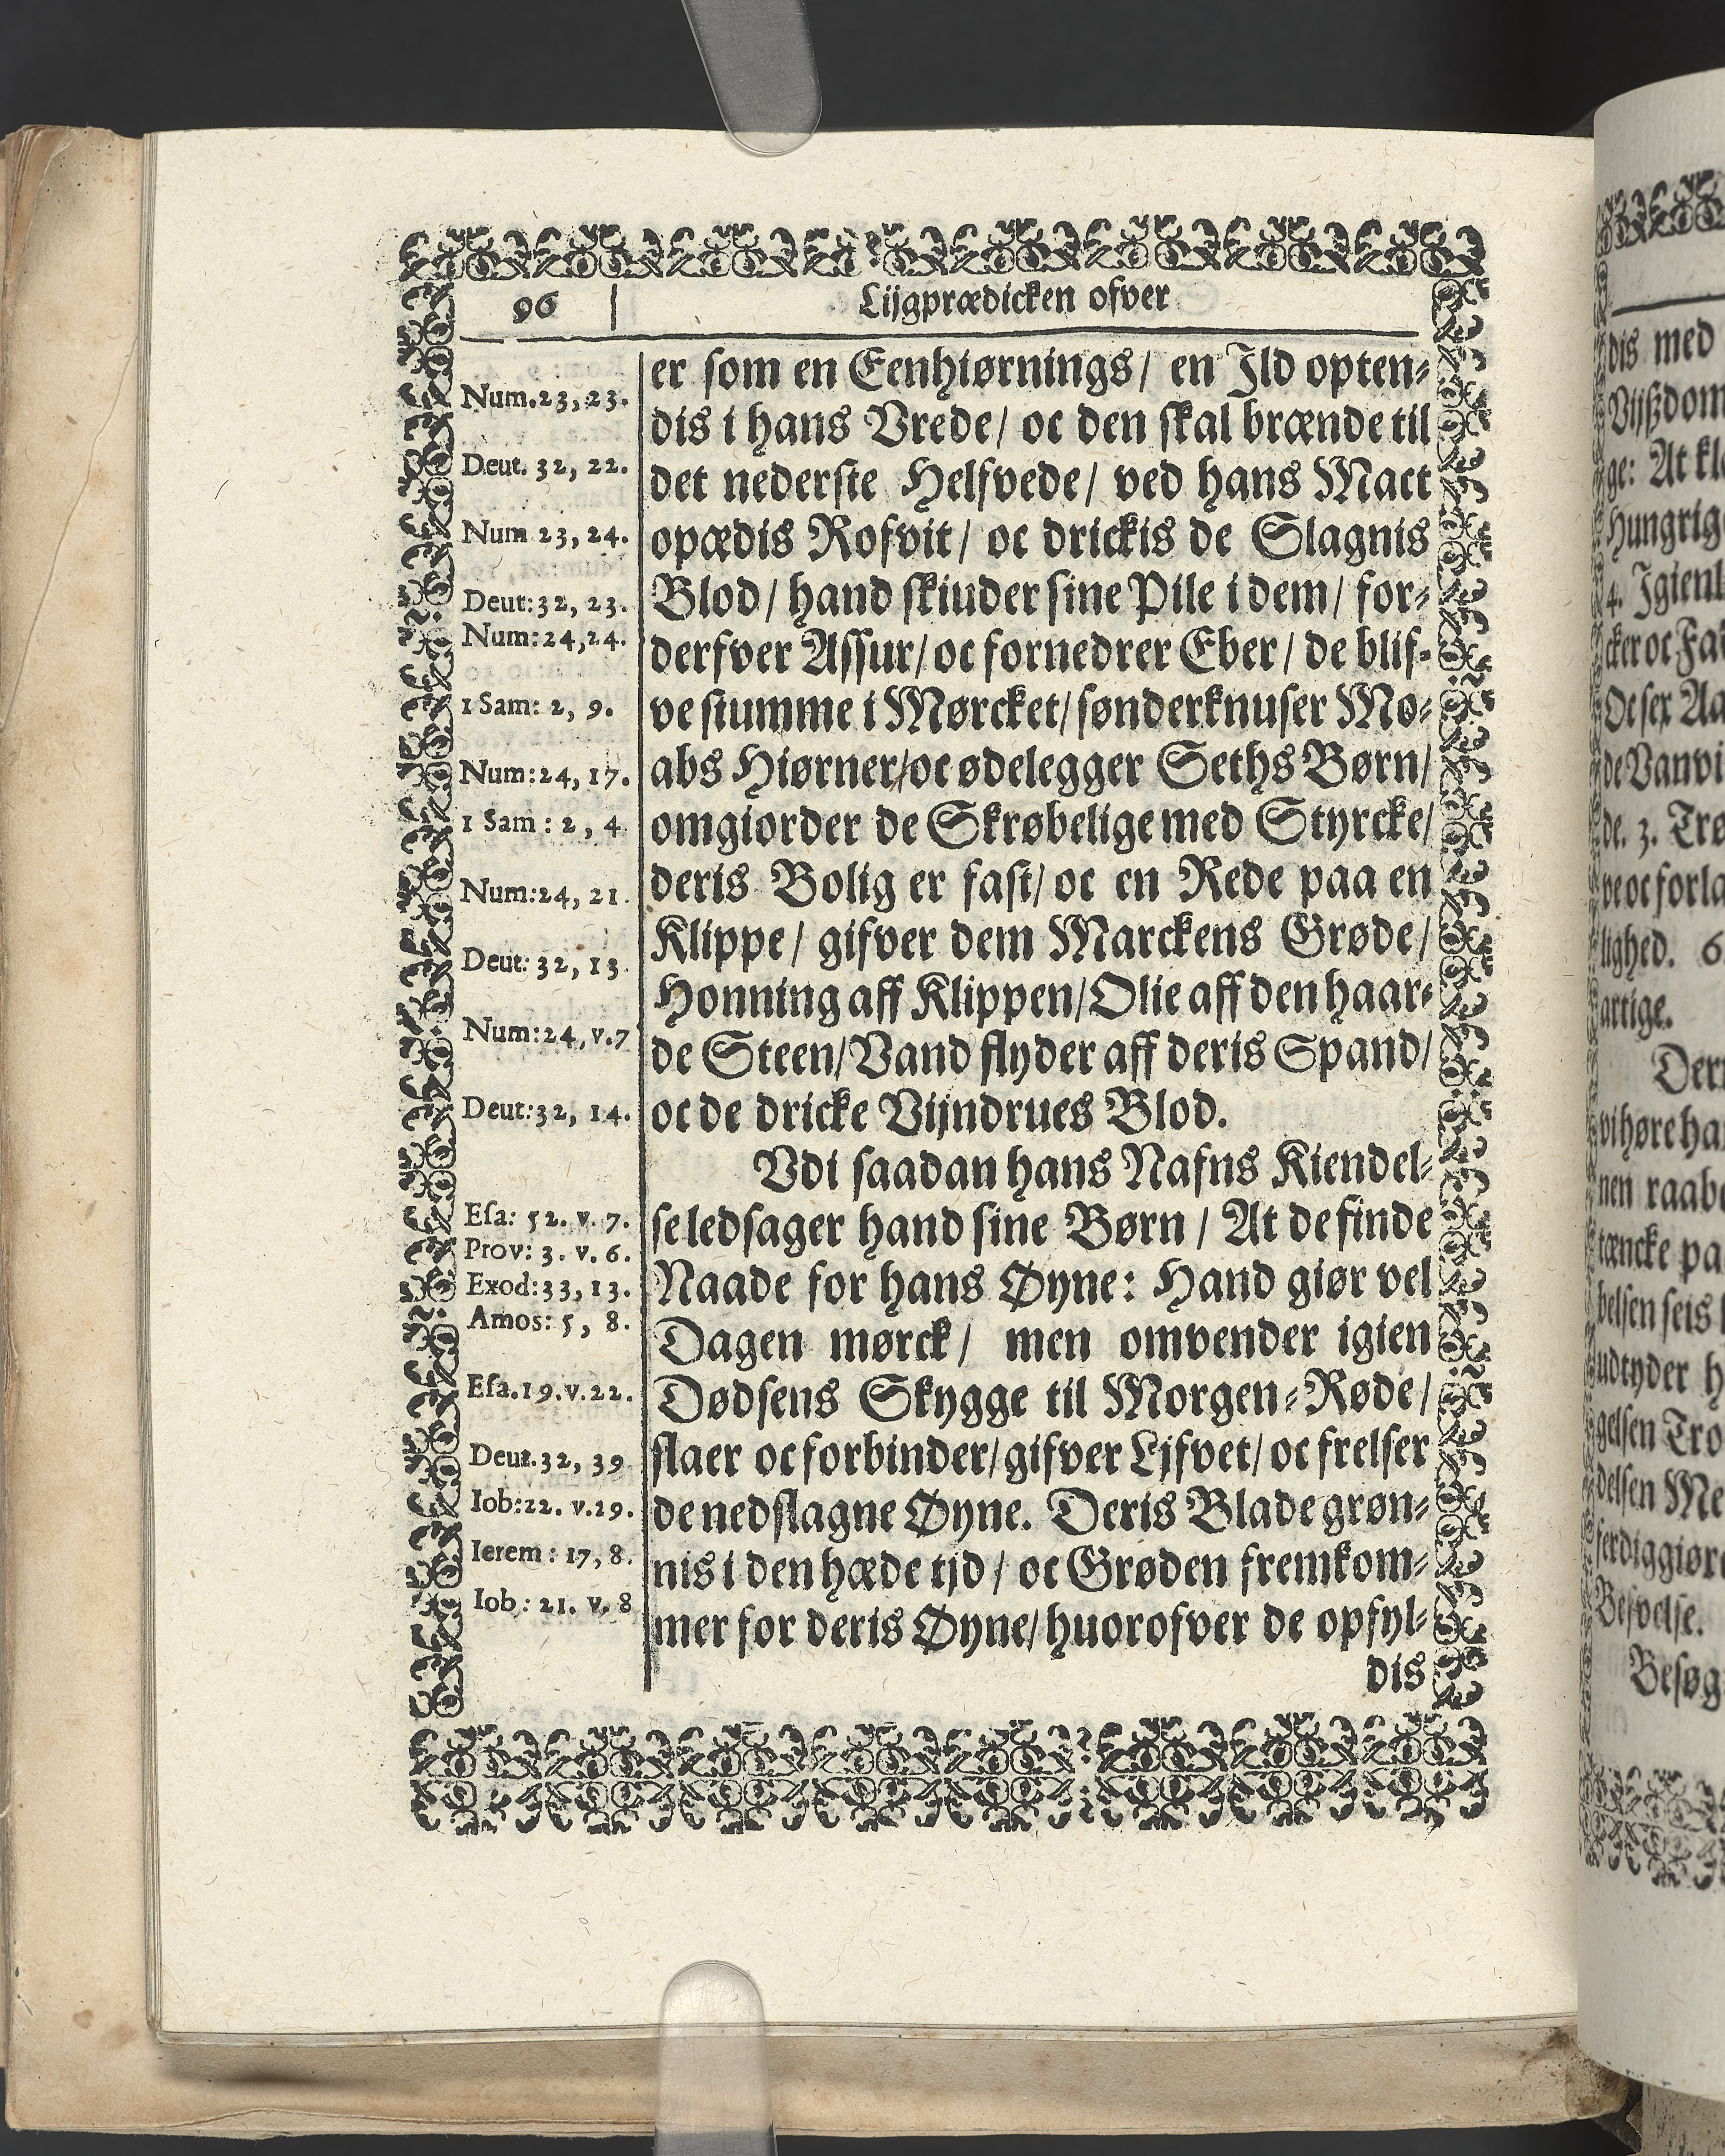 96
Lijgprædicken ofver
er som en Eenhiørnings/ en Jld opten-
dis i hans Vrede/ oc den skal brænde til
det nederste Helfvede/ ved hans Mact
opædis Rofvit/ oc drickis de Slagnis
Blod/ hand skiuder sine Pile i dem/ for-
derfver Assur/ oc fornedrer Eber/ de blif-
ve stumme i Mørcket/ sønderknuser Mo-
abs Hiørner/ oc ødelegger Seths Børn/
omgiorder de Skrøbelige med Styrcke/
deris Bolig er fast/ oc en Rede paa en
Klippe/ gifver dem Marckens Grøde/
Honning aff Klippen/ Olie aff den haar-
de Steen/ Vand flyder aff deris Spand/
oc de dricke Vijndrues Blod.
Vdi saadan hans Nafns Kiendel-
se ledsager hand sine Børn / At de finde
Naade for hans Øyne: Hand giør vel
Dagen mørck/ men omvender igien
Dødsens Skygge til Morgen-Røde/
slaer oc forbinder/ gifver Ljfvet/ oc frelser
de nedslagne Øyne. Deris Blade grøn-
nis i den hæde tjd / oc Grøden fremkom-
mer for deris Øyne/ huorofver de opfyl-
dis
Num.23,23.
Deut. 32, 22.
Num 23, 24.
Deut:32, 23.
Num:24,24.
1 Sam: 2, 9.
Num:24, 17.
1 Sam : 2, 4
Num:24, 21.
Deut: 32, 13
Num:24, v.7
Deut:32, 14.
Esa: 52. v. 7.
Prov: 3. v. 6.
Exod:33, 13.
Amos: 5, 8.
Esa.19.v.22.
Deut.32, 39
Iob:22. v.29.
Ierem : 17, 8.
Iob : 21. v. 8
dis med
Vijßdom
ge: At kl
Hungrig
4. Jgienl
cker oc Fa
Oc sex Aa
de Vanvi
de. 3. Trø
ve oc forla
lighed. 6
artige.
Der
vi høre ha
nen raab
tæncke pa
belsen seis
udtyder h
gelsen Tro
delsen Me
ferdiggiør
Besvelse.
Besøg